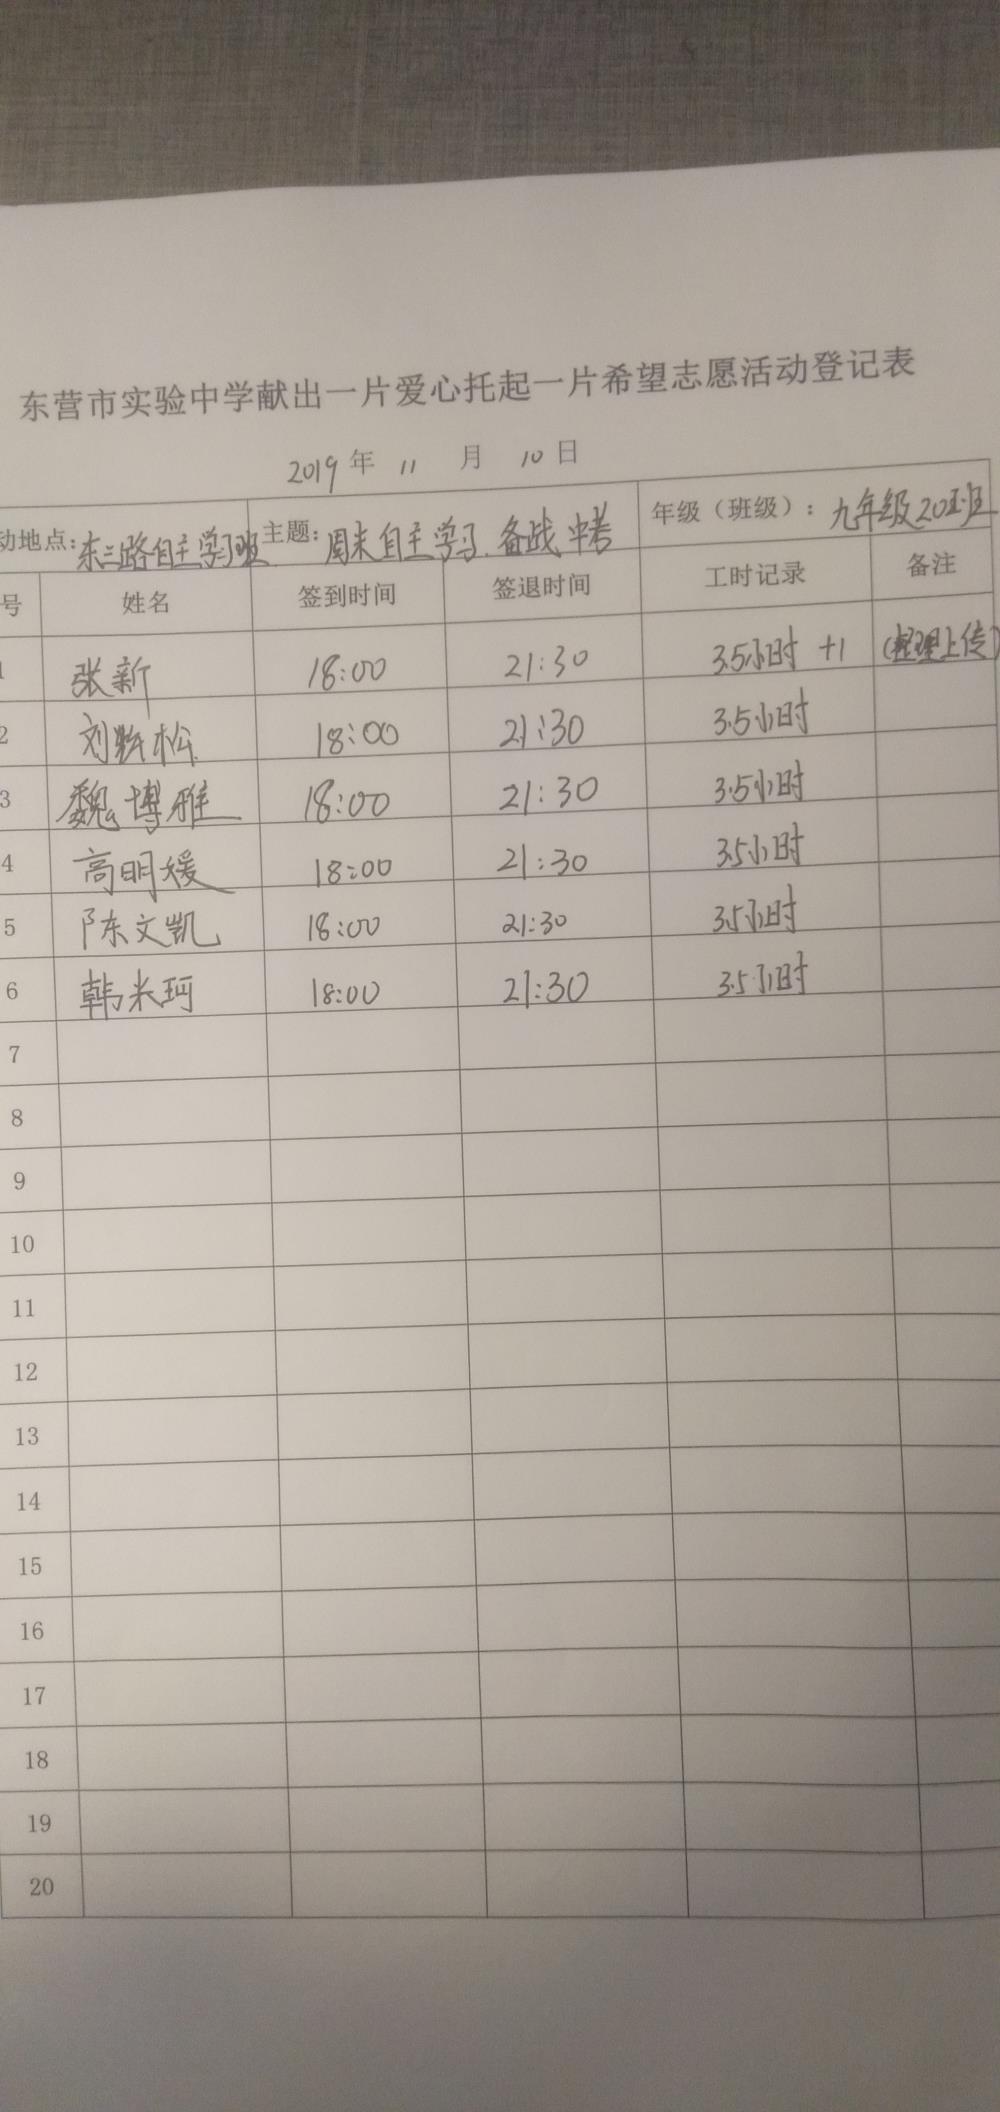 东营市实验中学献出一片爱心托起一片希望志愿活动登记表
2019年 11 月 10日
动地点:东三路自主学习班 主题:周末自主学习.备战中考 年级（班级）:九年级20班
号 姓名 签到时间 签退时间 工时记录 备注
1 张新 18:00 21:30 3.5小时 +1 (整理上传)
2 刘 松 18:00 21:30 3.5小时
3 魏博雅 18:00 21:30 3.5小时
4 高明媛 18:00 21:30 3.5小时
5 陈文凯 18:00 21:30 3.5小时
6 韩米珂 18:00 21:30 3.5小时
7
8
9
10
11
12
13
14
15
16
17
18
19
20